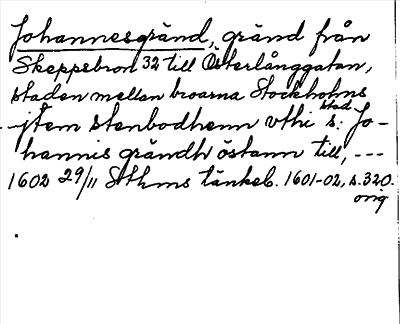 Johannesgränd, gränd från
Skeppsbron 32 till Österlånggatan,
staden mellan broarna Stockholms stad
- jtem stenbodhenn vthi s: Jo-
hannis grändh östann till, ---
1602 29/11 Sthms tänkeb. 1601-02, s. 320.
orig